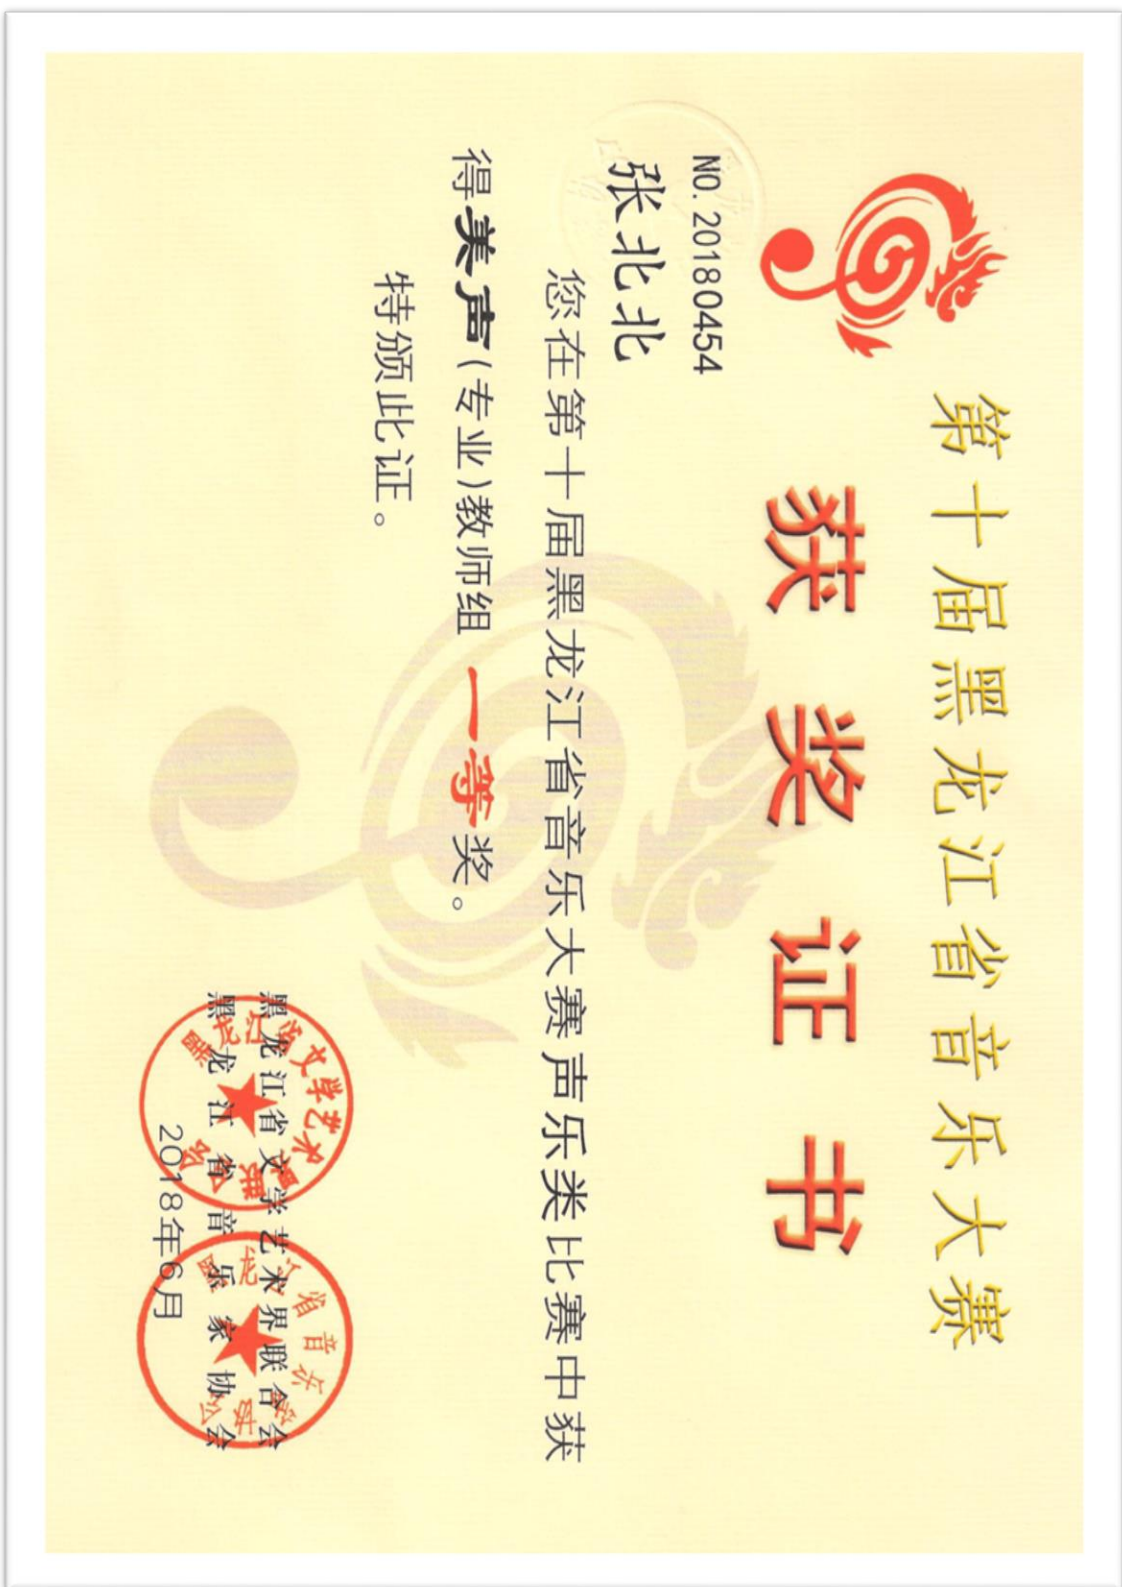 第十届黑龙江省音乐大赛
获奖证书
NO. 20180454
张北北
您在第十届黑龙江省音乐大赛声乐类比赛中获
得美声(专业)教师组 一等奖。
特颁此证。
黑龙江省文学艺术界联合会
黑龙江省音乐家协会
2018年6月